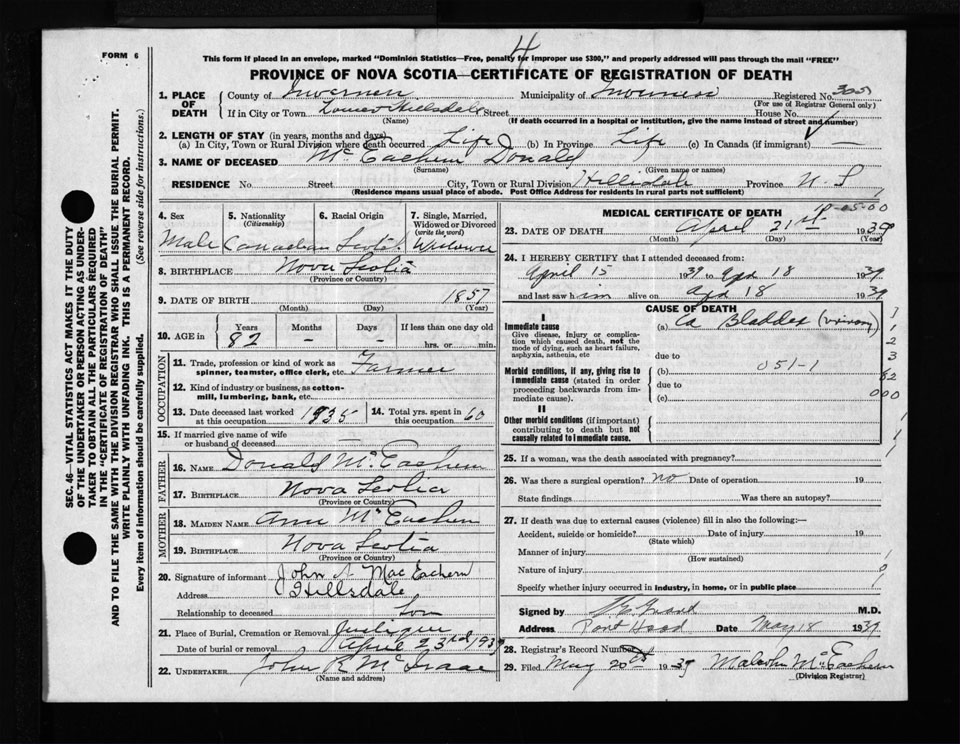 FORM 6
4
This form if placed in an envelope, marked "Dominion Statistics—Free, penalty for improper use $300," and properly addressed will pass through the mail "FREE"
PROVINCE OF NOVA SCOTIA—CERTIFICATE OF REGISTRATION OF DEATH
SEC. 46—VITAL STATISTICS ACT MAKES IT THE DUTY
OF THE UNDERTAKER OR PERSON ACTING AS UNDER-
TAKER TO OBTAIN ALL THE PARTICULARS REQUIRED
IN THE "CERTIFICATE OF REGISTRATION OF DEATH"
AND TO FILE THE SAME WITH THE DIVISION REGISTRAR WHO SHALL ISSUE THE BURIAL PERMIT.
WRITE PLAINLY WITH UNFADING INK. THIS IS A PERMANENT RECORD.
Every item of information should be carefully supplied. (See reverse side for instructions.)
1. PLACE OF DEATH County of Inverness Municipality of Inverness Registered No.
(For use of Registrar General only)
If in City or Town Hillsdale Street House No.
(Name) (If death occurred in a hospital or institution, give the name instead of street and number)
2. LENGTH OF STAY (in years, months and days)
(a) In City, Town or Rural Division where death occurred Life (b) In Province Life (c) In Canada (if immigrant) —
3. NAME OF DECEASED McEachern Donald
(Surname) (Given name or names)
RESIDENCE No Street City, Town or Rural Division Hillsdale Province N. S
(Residence means usual place of abode. Post Office Address for residents in rural parts not sufficient)
4. Sex 5. Nationality (Citizenship) 6. Racial Origin 7. Single, Married, Widowed or Divorced (write the word)
Male Canadian Scotch Widower
8. BIRTHPLACE Nova Scotia
(Province or Country)
9. DATE OF BIRTH 1857
(Month) (Day) (Year)
10. AGE in Years Months Days If less than one day old
82 – – hrs. or min.
OCCUPATION
11. Trade, profession or kind of work as spinner, teamster, office clerk, etc. Farmer
12. Kind of industry or business, as cotton-mill, lumbering, bank, etc.
13. Date deceased last worked at this occupation 1935 14. Total yrs. spent in this occupation 60
15. If married give name of wife or husband of deceased
FATHER
16. NAME Donald McEachern
17. BIRTHPLACE Nova Scotia
(Province or Country)
MOTHER
18. MAIDEN NAME Ann McEachern
19. BIRTHPLACE Nova Scotia
(Province or Country)
20. Signature of informant John A MacEachern
Address Hillsdale
Relationship to deceased Son
21. Place of Burial, Cremation or Removal Judique
Date of burial or removal April 23rd 1939
22. UNDERTAKER John R McIsaac
(Name and address)
MEDICAL CERTIFICATE OF DEATH
23. DATE OF DEATH April 21st 1939
(Month) (Day) (Year)
24. I HEREBY CERTIFY that I attended deceased from:
April 15 1939 to Apr 18 1939
and last saw him alive on Apr 18 1939
CAUSE OF DEATH
I
Immediate cause
Give disease, injury or complication which caused death, not the mode of dying, such as heart failure, asphyxia, asthenia, etc
(a) Ca Bladder
due to
Morbid conditions, if any, giving rise to immediate cause (stated in order proceeding backwards from immediate cause).
(b) 051-1
due to
(c)
II
Other morbid conditions (if important) contributing to death but not causally related to immediate cause.
25. If a woman, was the death associated with pregnancy?
26. Was there a surgical operation? no Date of operation 19
State findings Was there an autopsy?
27. If death was due to external causes (violence) fill in also the following:—
Accident, suicide or homicide? Date of injury 19
(State which)
Manner of injury
(How sustained)
Nature of injury
Specify whether injury occurred in industry, in home, or in public place
Signed by M.D.
Address Port Hood Date May 18 1939
28. Registrar's Record Number
29. Filed May 20th 1939 Malcolm McEachern
(Division Registrar)